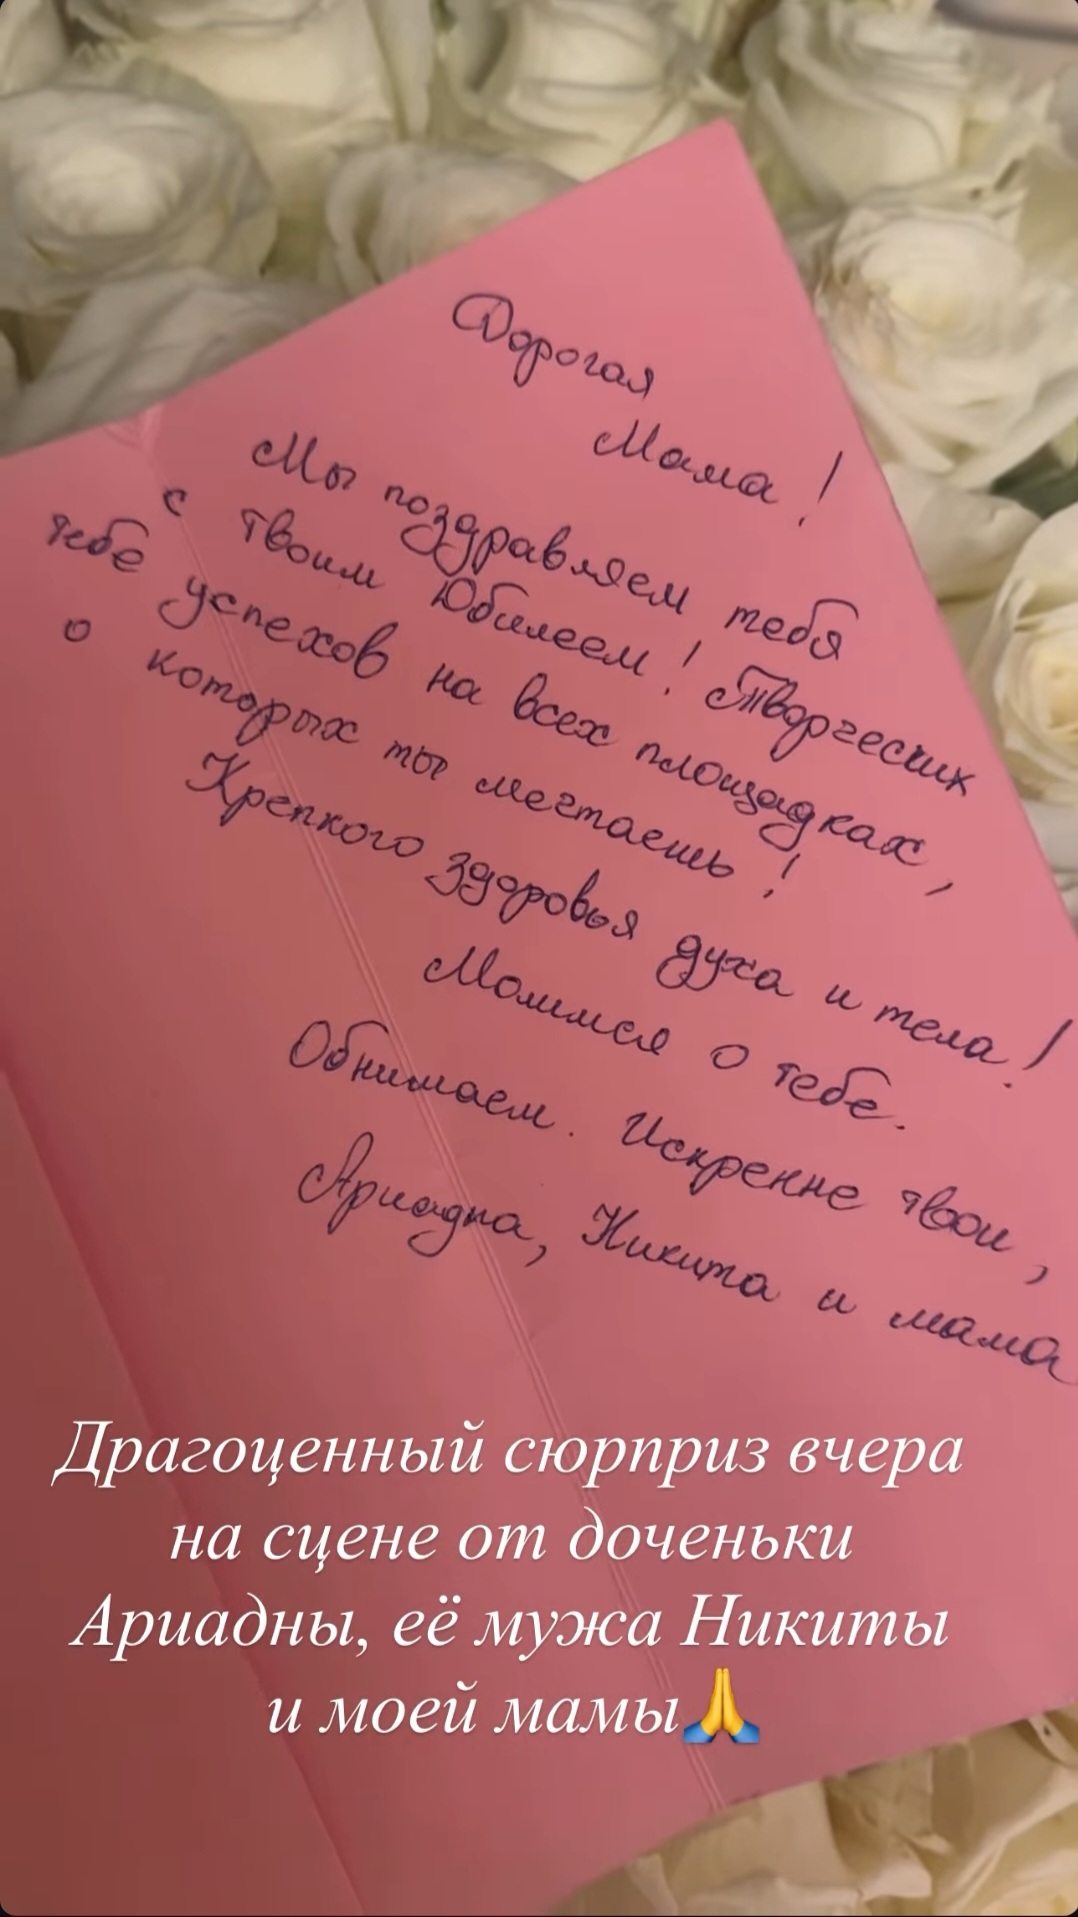 Дорогая
Мама!
Мы поздравляем тебя
с твоим Юбилеем! Творческих
тебе успехов на всех площадках,
о которых ты мечтаешь!
Крепкого здоровья духа и тела!
Молимся о тебе.
Обнимаем. Искренне твои,
Ариадна, Никита и мама
Драгоценный сюрприз вчера
на сцене от доченьки
Ариадны, её мужа Никиты
и моей мамы🙏